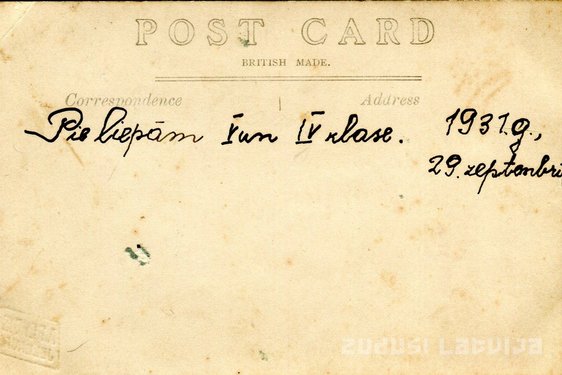 POST CARD
BRITISH MADE.
Correspondence Address
Pie liepām V un IV klase. 1931.g.,
29. septembrī
zudusi Latvija